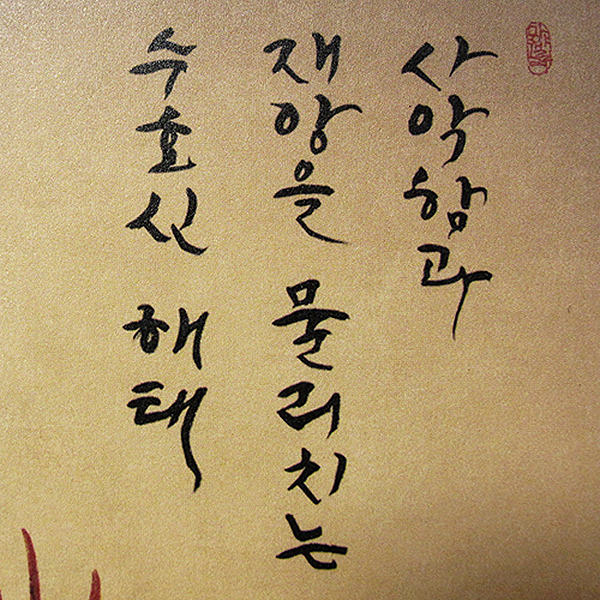 사악함과
재앙을 물리치는
수호신 해태